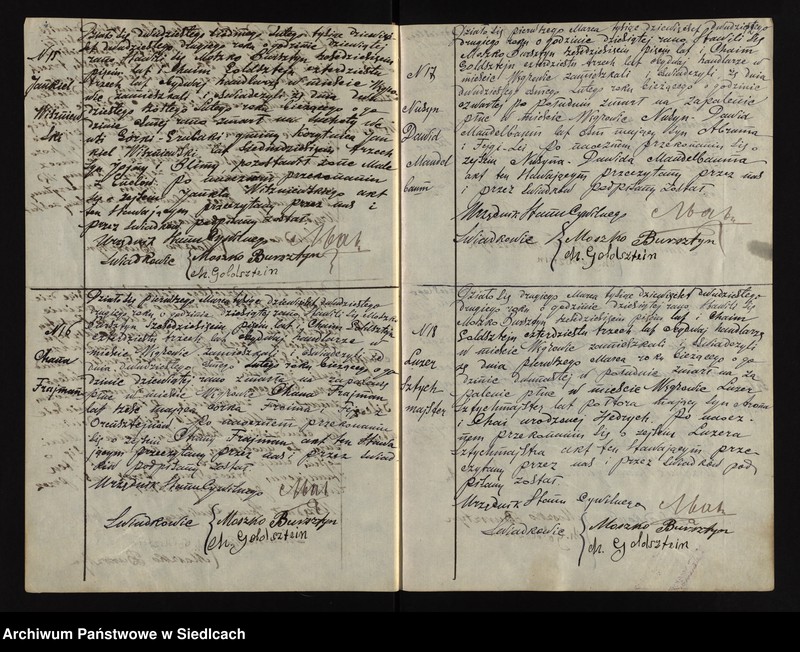 Nr 15
Jankiel
Wiśniew
ski
Działo się dwudziestego siódmego Lutego tysiąc dziewięć
set dwudziestego drugiego roku o godzinie dziewiątej
rano stawili się Moszko Bursztyn sześćdziesięciu
pięciu lat i Chaim Goldsztejn czterdziestu
trzech lat obydwaj handlarze w mieście Węgro
wie zamieszkali i oświadczyli, że dnia dwu
dziestego szóstego Lutego roku bieżącego o go
dzinie rano zmarł na suchoty we
wsi gminy Korytnica Jan
kiel Wiśniewski lat siedmdziesięciu trzech
syn i pozostawił żonę
z Po naocznem przekonaniu
się o zejściu Jankla Wiśniewskiego akt
ten stawającym przeczytany przez nas i
przez świadków podpisany został
Urzędnik Stanu Cywilnego
Świadkowie Moszko Bursztyn
Ch. Goldsztein
Nr 16
Chana
Frajman
Działo się pierwszego Marca tysiąc dziewięćset dwudziestego
drugiego roku o godzinie dziesiątej rano stawili się Moszko
Bursztyn sześćdziesięciu pięciu lat i Chaim Goldsztejn
czterdziestu trzech lat obydwaj handlarze w
mieście Węgrowie zamieszkali i oświadczyli, że
dnia dwudziestego ósmego Lutego roku bieżącego o go
dzinie dziewiątej rano zmarła na zapalenie
płuc w mieście Węgrowie Chana Frajman
lat sześć mająca córka Froima i
Po naocznem przekonaniu
się o zejściu Chany Frajman akt ten stawa
jącym przeczytany przez nas i przez świad
ków podpisany został
Urzędnik Stanu Cywilnego
Świadkowie Moszko Bursztyn
Ch. Goldsztein
Nr 17
Nusyn
Dawid
Mandel
baum
Działo się pierwszego Marca tysiąc dziewięćset dwudziestego
drugiego roku o godzinie dziesiątej rano stawili się
Moszko Bursztyn sześćdziesięciu pięciu lat i Chaim
Goldsztejn czterdziestu trzech lat obydwaj handlarze w
mieście Węgrowie zamieszkali i oświadczyli, że dnia
dwudziestego ósmego Lutego roku bieżącego o godzinie
czwartej po południu zmarł na zapalenie
płuc w mieście Węgrowie Nusyn-Dawid
Mandelbaum lat ośm mający syn Abrama
i Fejgi-Lei Po naocznem przekonaniu się o
zejściu Nusyna-Dawida Mandelbauma
akt ten stawającym przeczytany przez nas
i przez świadków podpisany został
Urzędnik Stanu Cywilnego
Świadkowie Moszko Bursztyn
Ch. Goldsztein
Nr 18
Luzer
Sztych
majster
Działo się drugiego Marca tysiąc dziewięćset dwudziestego
drugiego roku o godzinie dziesiątej rano stawili się
Moszko Bursztyn sześćdziesięciu pięciu lat i Chaim
Goldsztejn czterdziestu trzech lat obydwaj handlarze
w mieście Węgrowie zamieszkali i oświadczyli,
że dnia pierwszego Marca roku bieżącego o go
dzinie dwunastej w południe zmarł na za
palenie płuc w mieście Węgrowie Luzer
Sztychmajster lat półtora mający syn Arona
i Chai urodzonej Po naocz
nem przekonaniu się o zejściu Luzera
Sztychmajstra akt ten stawającym prze
czytany przez nas i przez świadków pod
pisany został
Urzędnik Stanu Cywilnego
Świadkowie Moszko Bursztyn
Ch. Goldsztein
Archiwum Państwowe w Siedlcach